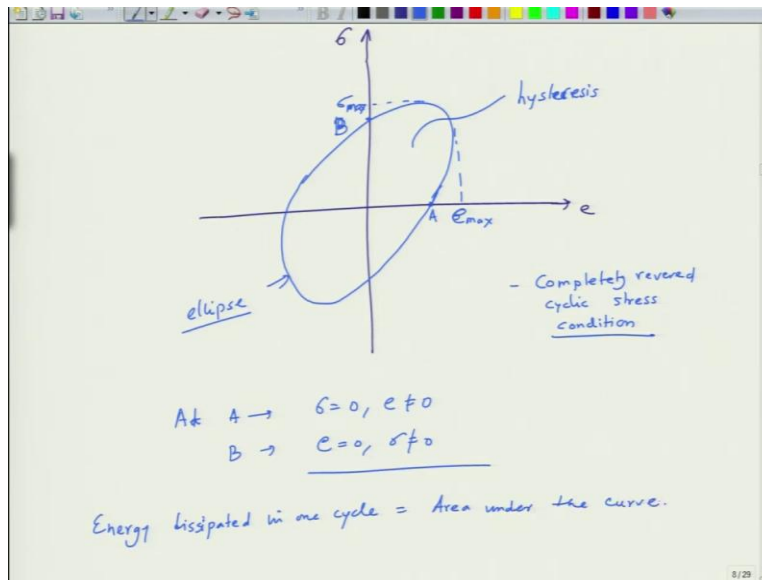 σ
σmax
B
hysteresis
A
emax
e
ellipse
- Completely revered
cyclic stress
condition
At A → σ=0, e≠0
B → e=0, σ≠0
Energy dissipated in one cycle = Area under the curve.
8/29